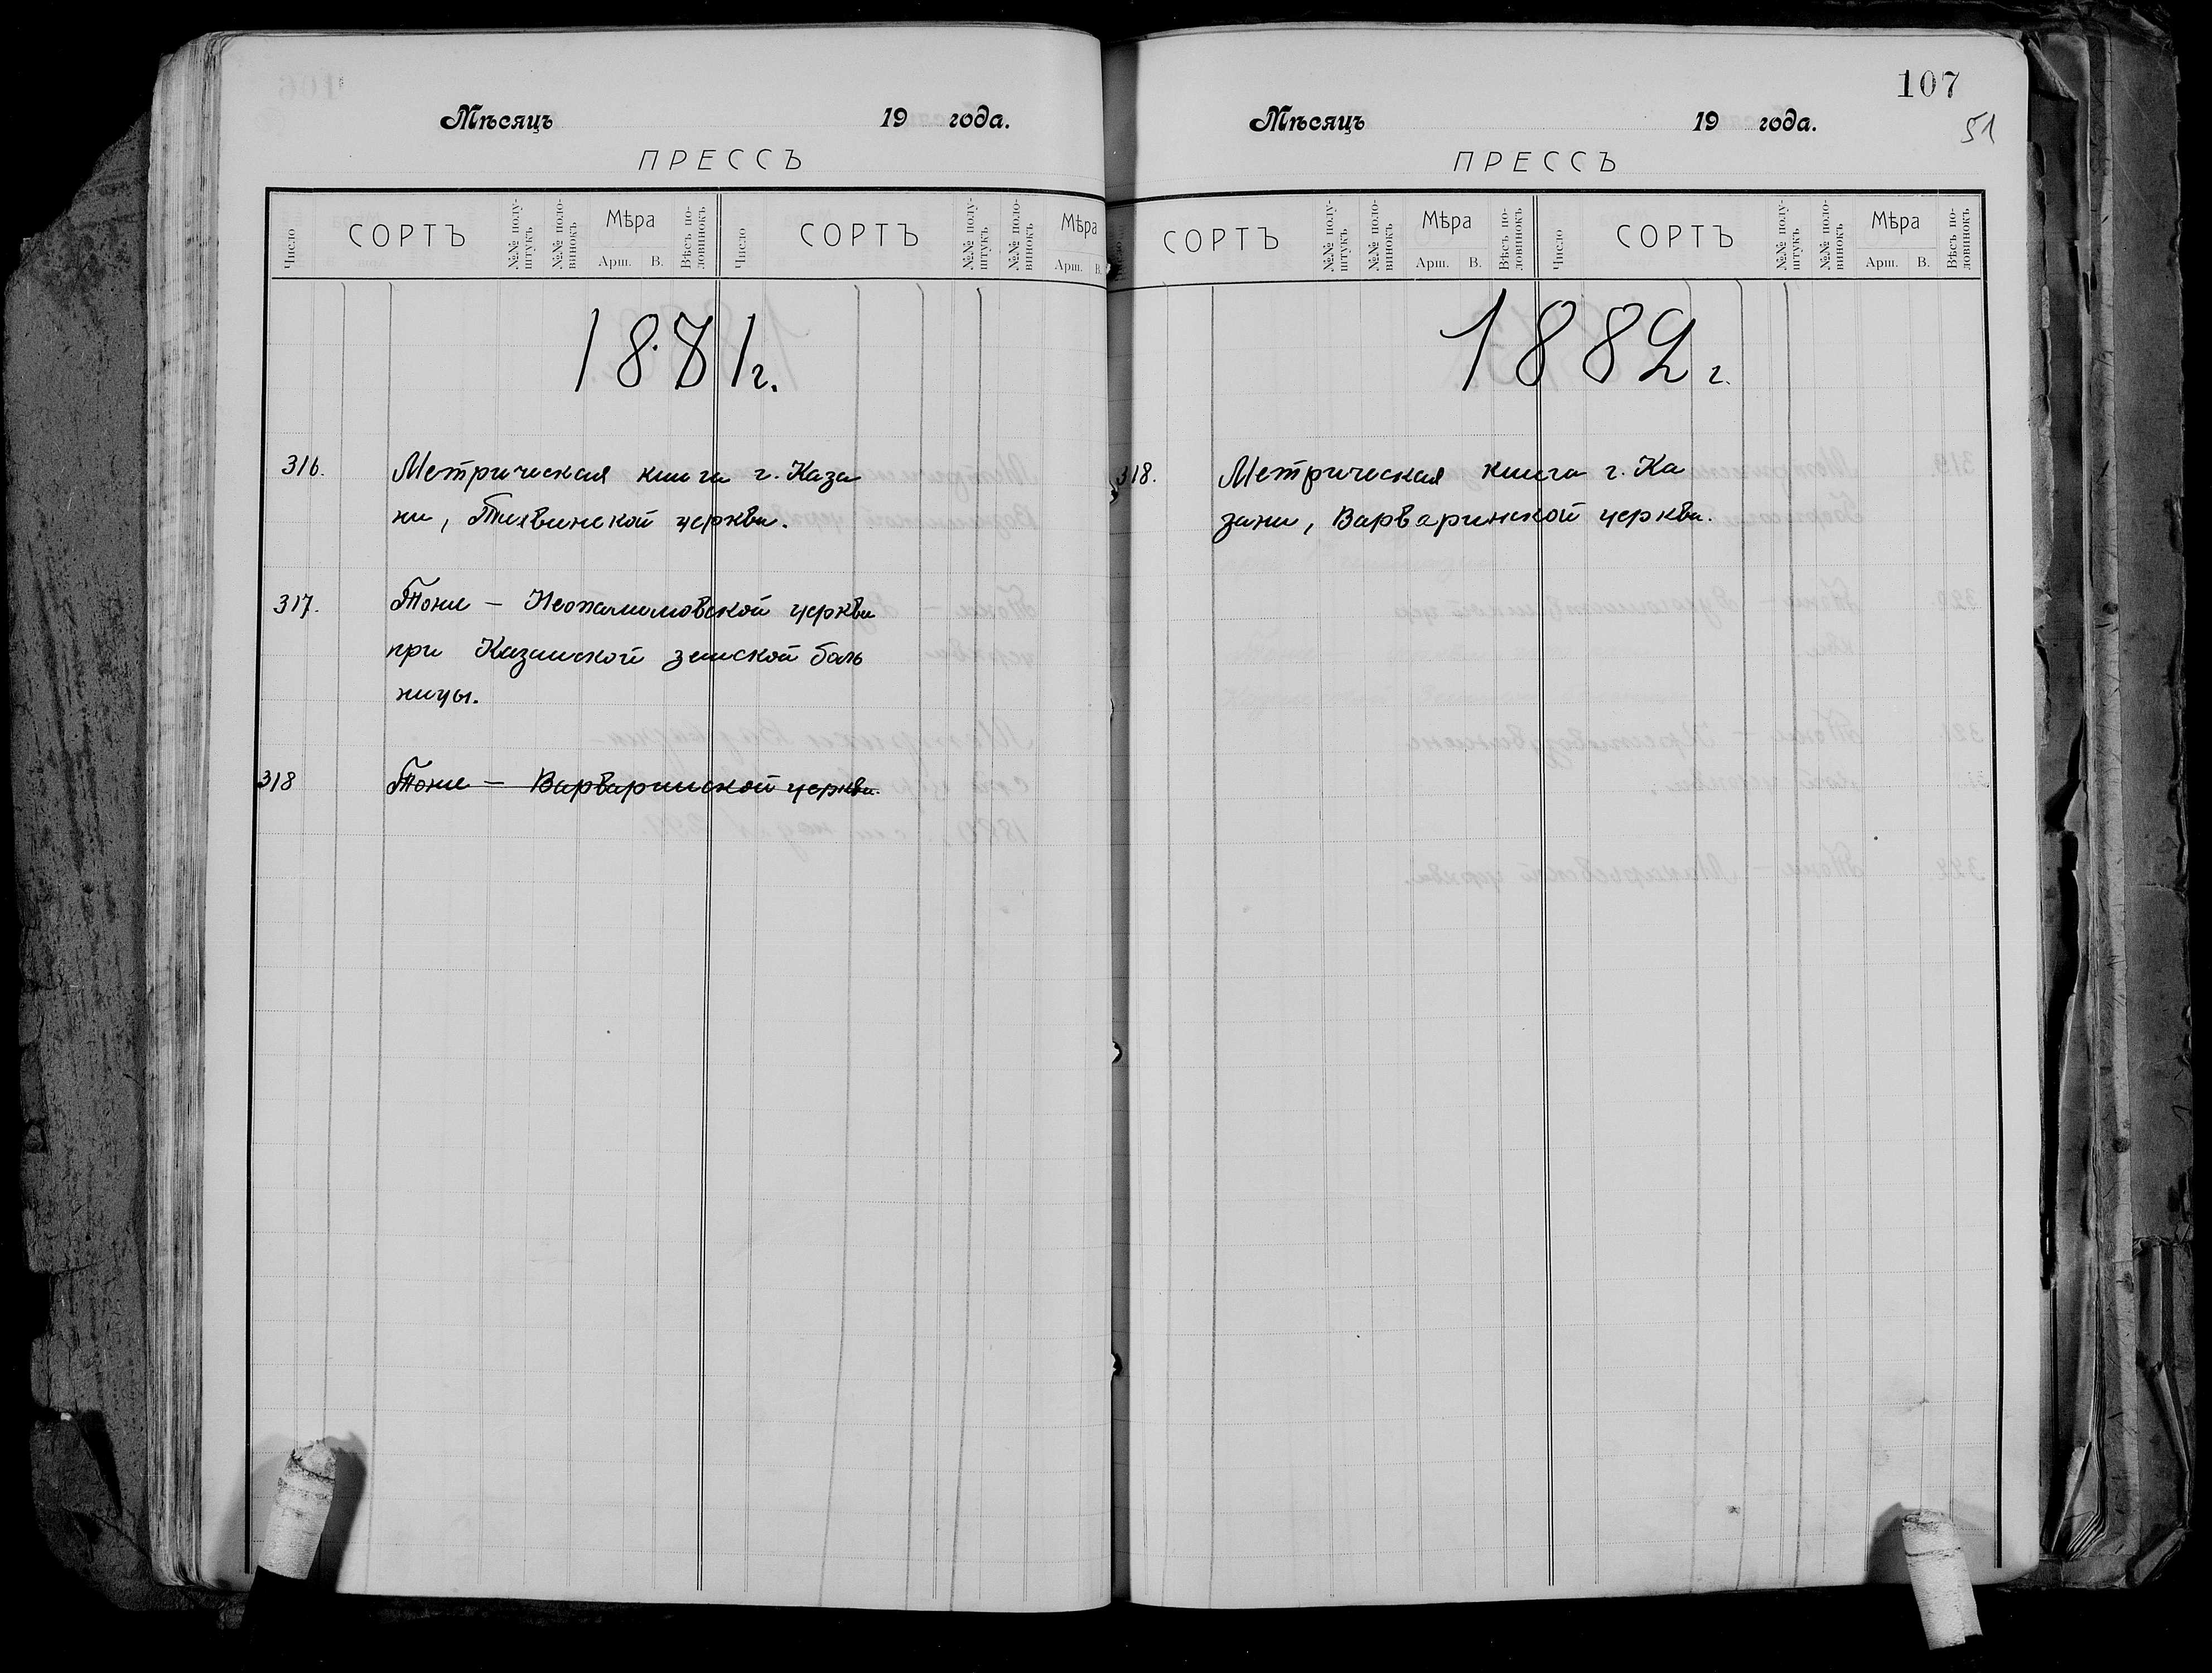 Мѣсяцъ 19 года.
ПРЕССЪ
Число СОРТЪ №№ полуштукъ №№ половинокъ Мѣра Арш. В. Вѣсъ половинокъ Число СОРТЪ №№ полуштукъ №№ половинокъ Мѣра Арш. В.
1881г.
316. Метрическая книга г. Каза
ни, Тихвинской церкви.
317. Тоже — Неопалимовской церкви
при Казанской земской боль
ницы.
318 Тоже — Варваринской церкви.
107
51
Мѣсяцъ 19 года.
ПРЕССЪ
СОРТЪ №№ полуштукъ №№ половинокъ Мѣра Арш. В. Вѣсъ половинокъ Число СОРТЪ №№ полуштукъ №№ половинокъ Мѣра Арш. В. Вѣсъ половинокъ
1882 г.
318. Метрическая книга г. Ка
зани, Варваринской церкви.